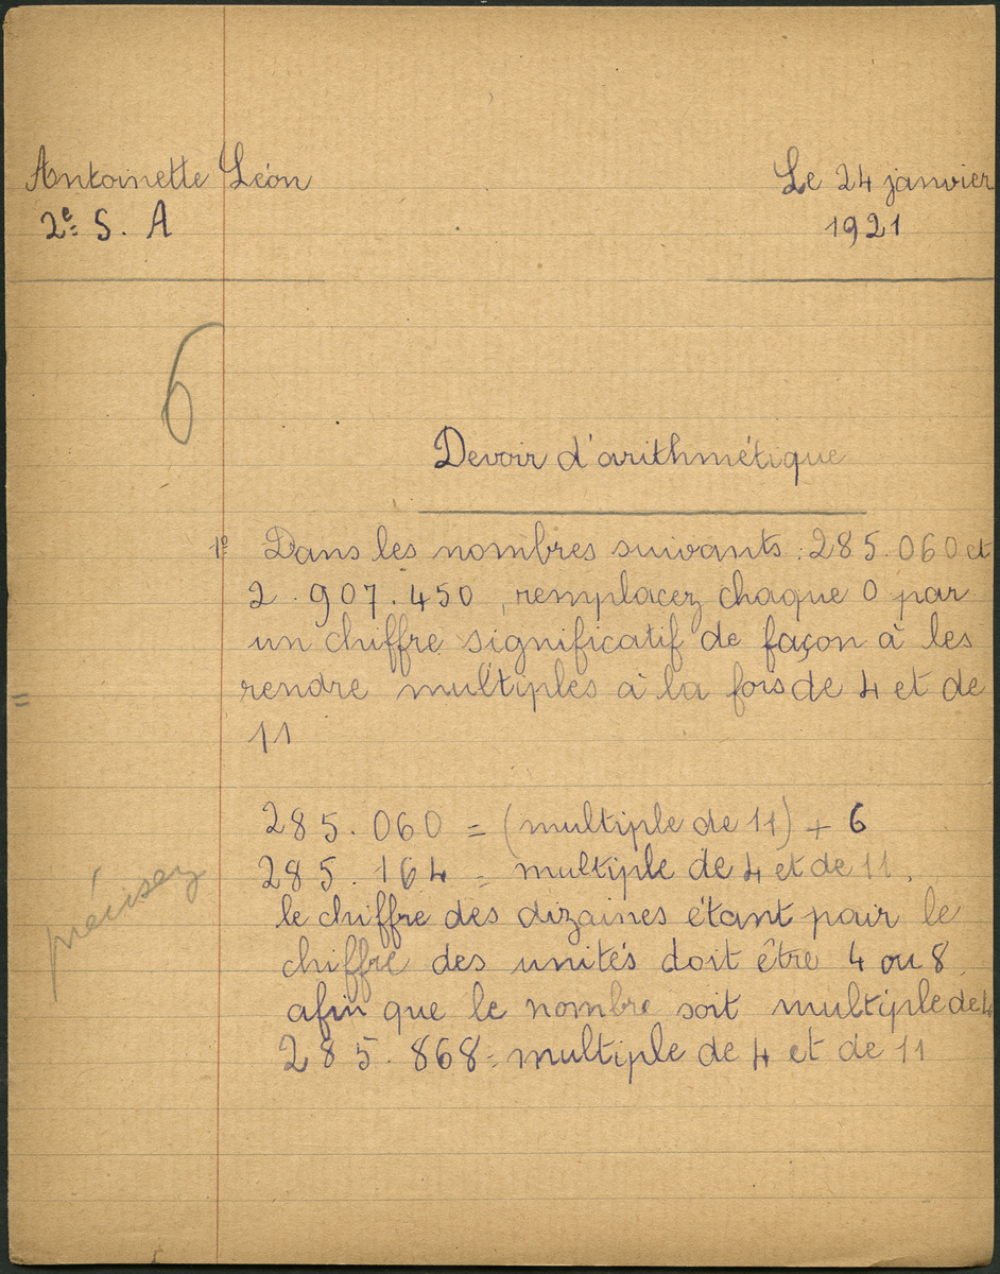 Antoinette Léon
Le 24 janvier
2e S. A
1921
6
Devoir d'arithmétique
1º Dans les nombres suivants : 285.060 et
2.907.450, remplacez chaque 0 par
un chiffre significatif de façon à les
rendre multiples à la fois de 4 et de
11
285.060 = (multiple de 11) + 6
285.164 = multiple de 4 et de 11.
précisez
le chiffre des dizaines étant pair le
chiffre des unités doit être 4 ou 8
afin que le nombre soit multiple de 4
285.868 = multiple de 4 et de 11